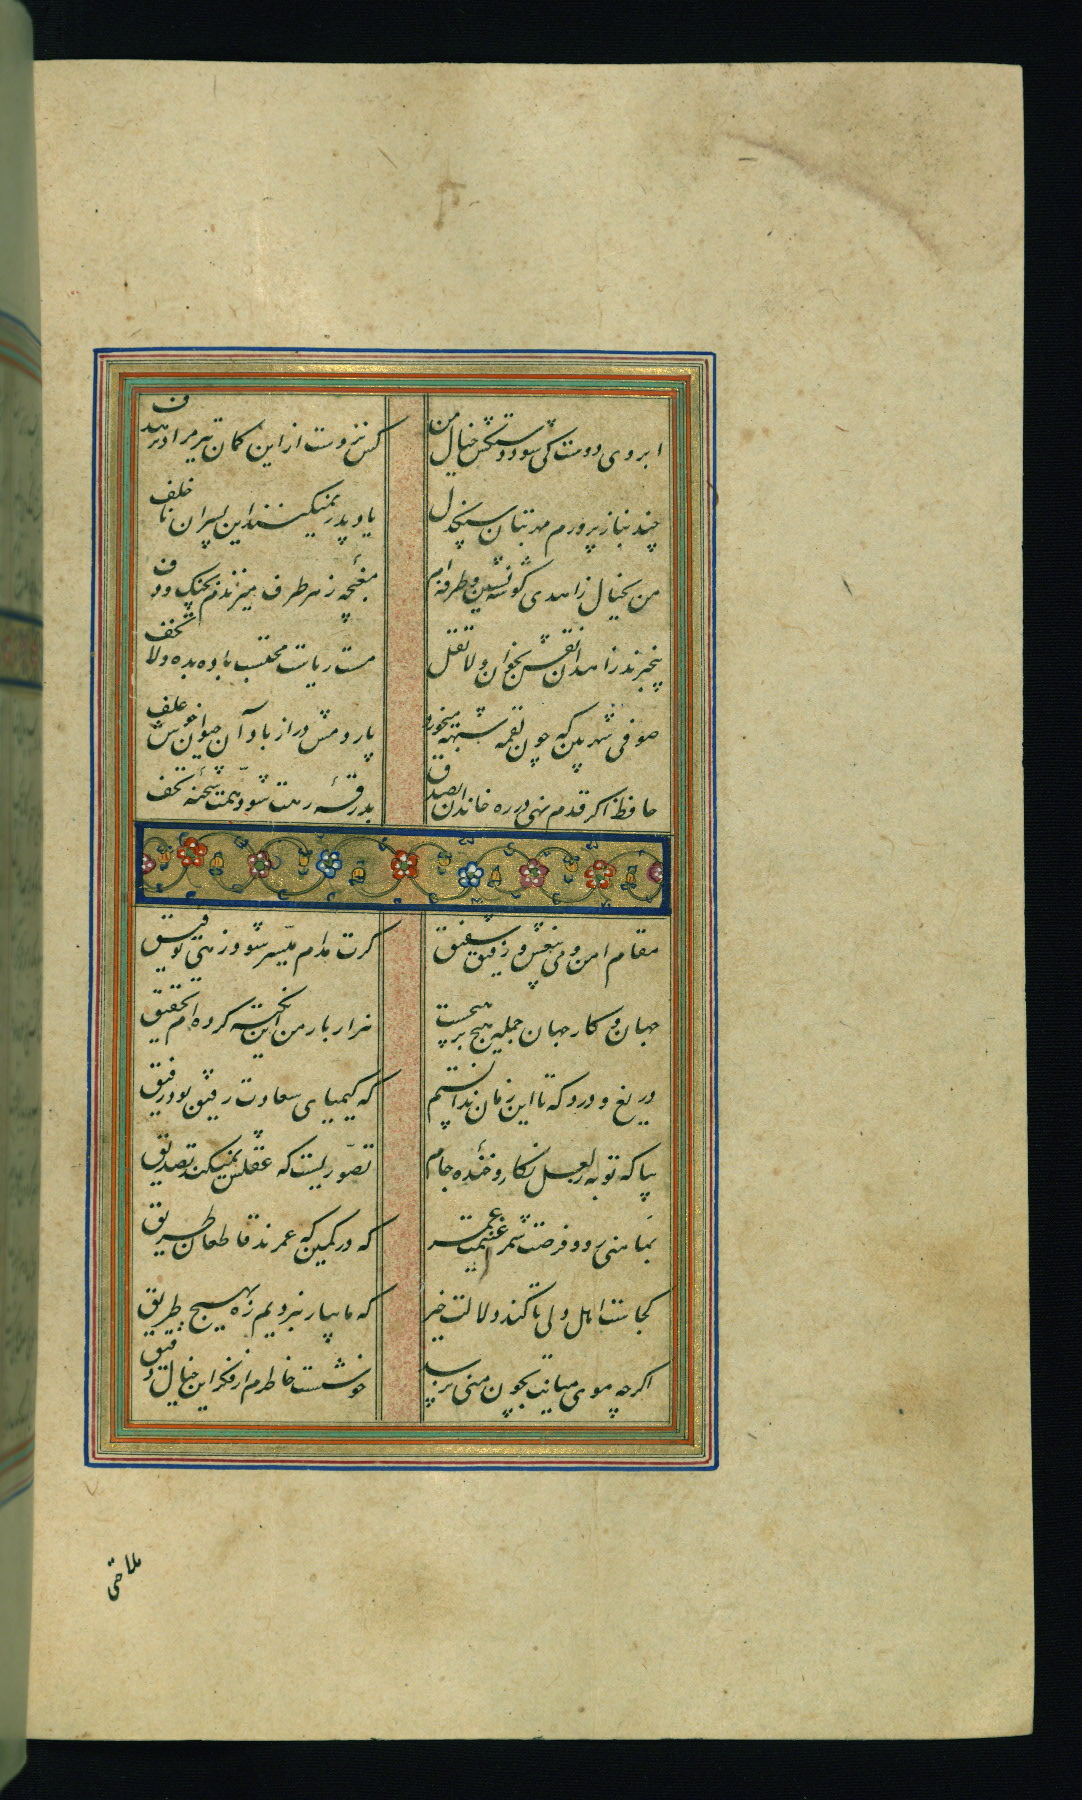 ابروی دوست کی شود دستکش خیال من
کس نزدست ازین کمان تیر مراد بر هدف
چند بناز پرورم مهر بتان سنگدل
یاد پدر نمیکنند این پسران ناخلف
من بخیال زاهدی گوشه نشین و طرفه آنک
مغبچه ز هر طرف میزندم بچنگ و دف
بیخبرند زاهدان نقش بخوان و لا تقل
مست ریاست محتسب باده بده و لا تخف
صوفی شهر بین که چون لقمه شبهه میخورد
پاردمش دراز باد آن حیوان خوش علف
حافظ اگر قدم نهی در ره خاندان بصدق
بدرقه رهت شود همت شحنه نجف
مقام امن و می بیغش و رفیق شفیق
گرت مدام میسر شود زهی توفیق
جهان و کار جهان جمله هیچ بر هیچست
هزار بار من این نکته کرده ام تحقیق
دریغ و درد که تا این زمان ندانستم
که کیمیای سعادت رفیق بود رفیق
بیا که توبه ز لعل نگار و خنده جام
تصوریست که عقلش نمیکند تصدیق
بمأمنی رو و فرصت شمر غنیمت عمر
که در کمین گه عمرند قاطعان طریق
کجاست اهل دلی تا کند دلالت خیر
که ما بیار نبردیم ره بهیچ طریق
اگرچه موی میانت بچون منی نرسد
خوشست خاطرم از فکر این خیال دقیق